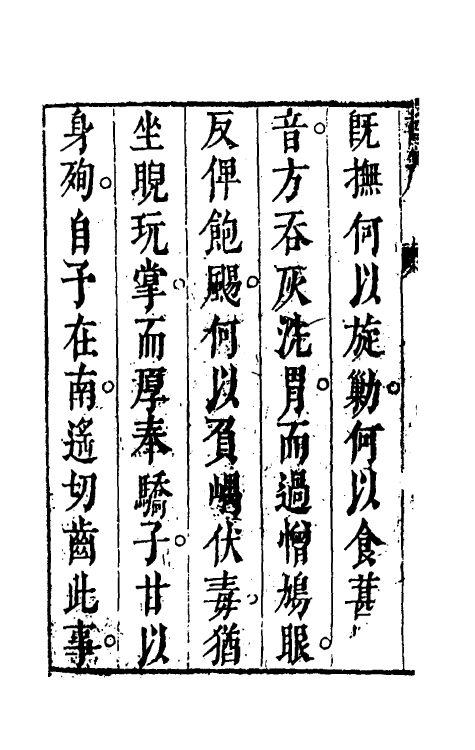 既撫何以旋勦何以食甚
音方吞灰洗胃而過憎鳩眼
反俾飽颺何以負嵎伏毒猶
坐睨玩掌而厚奉驕子甘以
身殉自予在南遙切齒此事